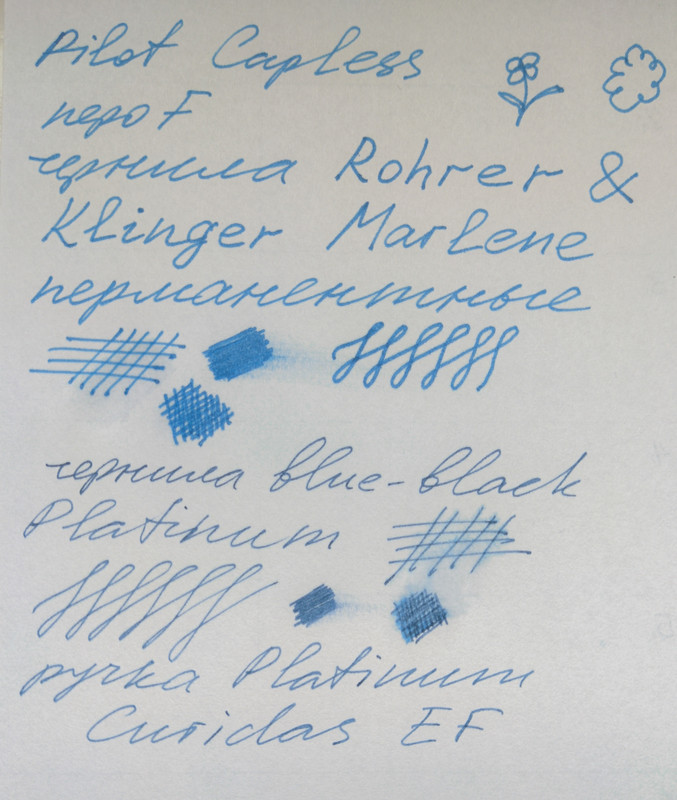 Pilot Capless
перо F
чернила Rohrer &
Klinger Marlene
перманентные
чернила blue-black
Platinum
ручка Platinum
Curidas EF